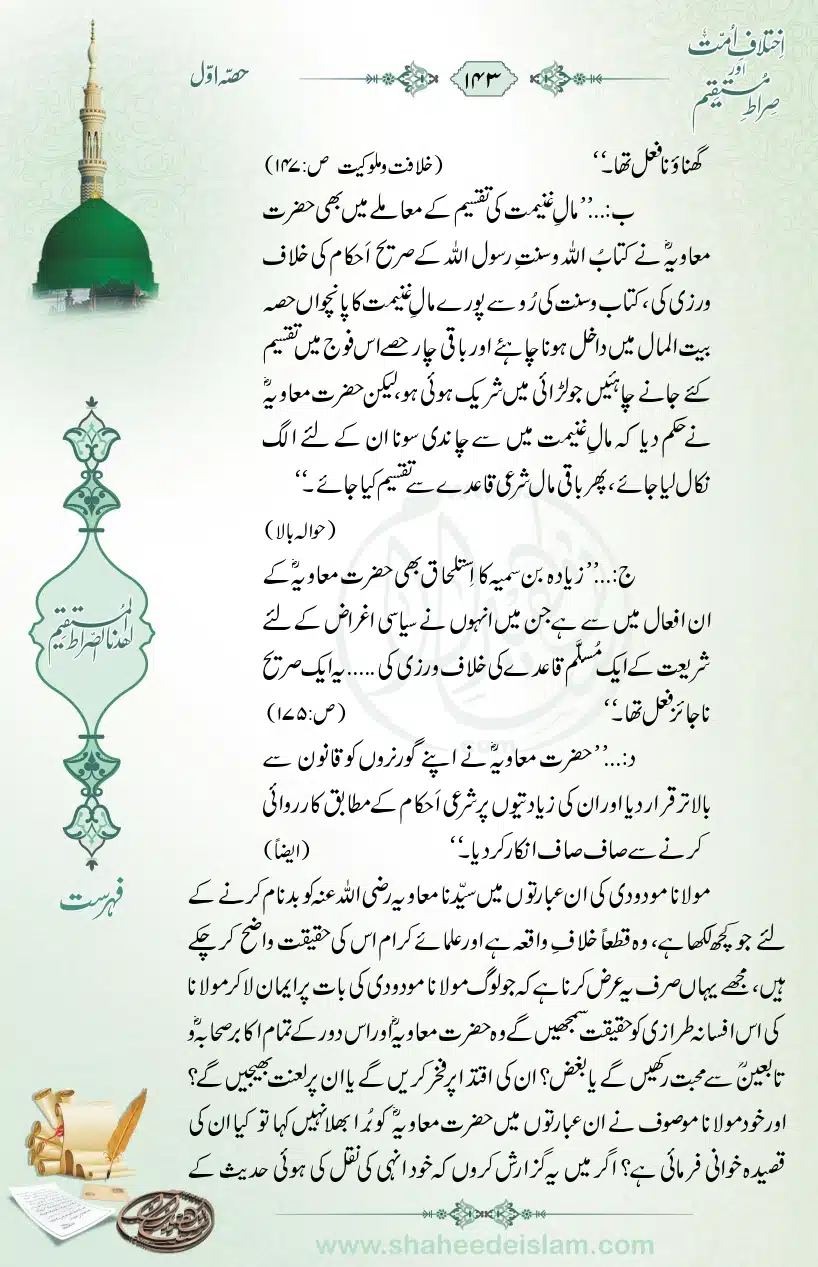 اِختلافِ اُمّت
اور
صِراطِ مُستقیم
۱۴۳
حصّہ اوّل
گھناؤنا فعل تھا۔‘‘ (خلافت وملوکیت ص:۱۴۷)
ب:...’’مالِ غنیمت کی تقسیم کے معاملے میں بھی حضرت
معاویہؓ نے کتابُ اللہ وسنتِ رسول اللہ کے صریح اَحکام کی خلاف
ورزی کی، کتاب وسنت کی رُو سے پورے مالِ غنیمت کا پانچواں حصہ
بیت المال میں داخل ہونا چاہئے اور باقی چار حصے اس فوج میں تقسیم
کئے جانے چاہئیں جو لڑائی میں شریک ہوئی ہو، لیکن حضرت معاویہؓ
نے حکم دیا کہ مالِ غنیمت میں سے چاندی سونا ان کے لئے الگ
نکال لیا جائے، پھر باقی مال شرعی قاعدے سے تقسیم کیا جائے۔‘‘
(حوالہ بالا)
ج:...’’زیادہ بن سمیہ کا اِستلحاق بھی حضرت معاویہؓ کے
ان افعال میں سے ہے جن میں انہوں نے سیاسی اغراض کے لئے
شریعت کے ایک مُسلَّم قاعدے کی خلاف ورزی کی.....یہ ایک صریح
ناجائز فعل تھا۔‘‘ (ص:۱۷۵)
د:...’’حضرت معاویہؓ نے اپنے گورنروں کو قانون سے
بالاتر قرار دیا اور ان کی زیادتیوں پر شرعی اَحکام کے مطابق کارروائی
کرنے سے صاف صاف انکار کردیا۔‘‘ (ایضاً)
مولانا مودودی کی ان عبارتوں میں سیّدنا معاویہ رضی اللہ عنہ کو بدنام کرنے کے
لئے جو کچھ لکھا ہے، وہ قطعاً خلافِ واقعہ ہے اور علمائے کرام اس کی حقیقت واضح کرچکے
ہیں، مجھے یہاں صرف یہ عرض کرنا ہے کہ جو لوگ مولانا مودودی کی بات پر ایمان لاکر مولانا
کی اس افسانہ طرازی کو حقیقت سمجھیں گے وہ حضرت معاویہؓ اور اس دور کے تمام اکابر صحابہؓ و
تابعینؒ سے محبت رکھیں گے یا بغض؟ ان کی اقتدا پر فخر کریں گے یا ان پر لعنت بھیجیں گے؟
اور خود مولانا موصوف نے ان عبارتوں میں حضرت معاویہؓ کو بُرا بھلا نہیں کہا تو کیا ان کی
قصیدہ خوانی فرمائی ہے؟ اگر میں یہ گزارش کروں کہ خود انہی کی نقل کی ہوئی حدیث کے
اهدنا الصّراط المُستقیم
فہرست
www.shaheedeislam.com